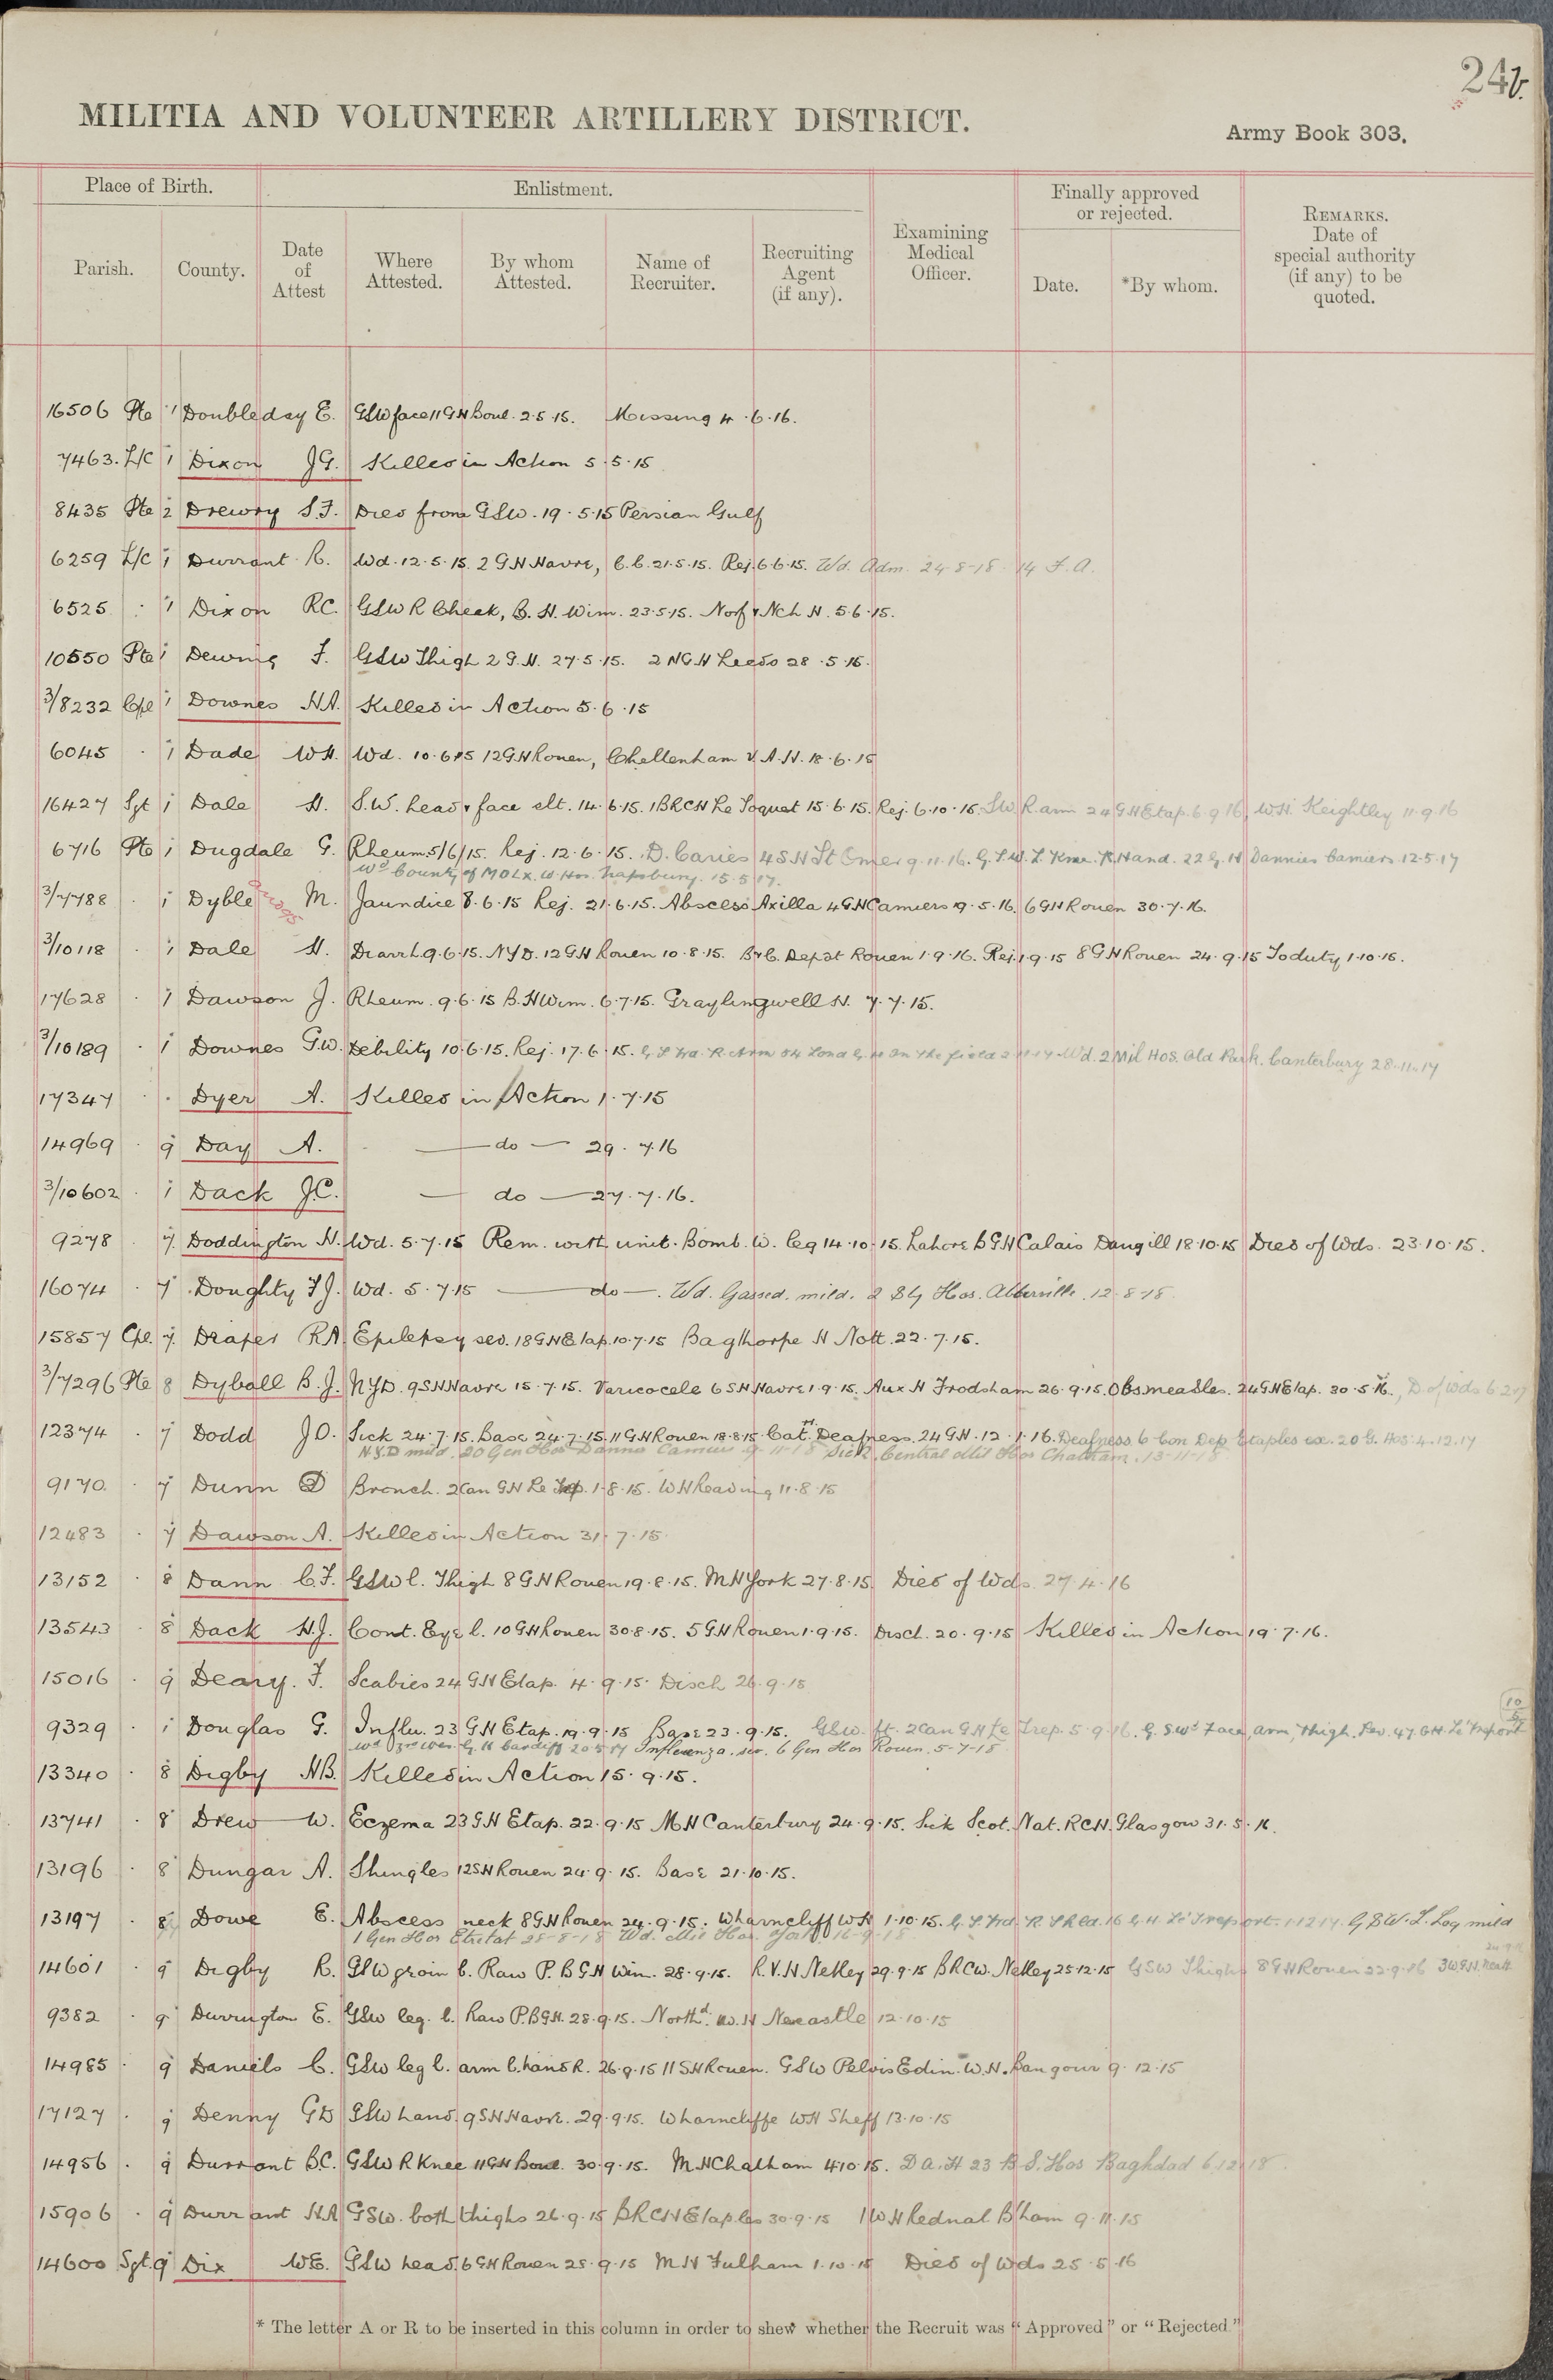 24b.
MILITIA AND VOLUNTEER ARTILLERY DISTRICT.
Army Book 303.
Place of Birth. Enlistment. Examining Medical Officer. Finally approved or rejected. REMARKS. Date of special authority (if any) to be quoted.
Parish. County. Date of Attest Where Attested. By whom Attested. Name of Recruiter. Recruiting Agent (if any). Date. *By whom.
16506 Pte 1 Doubleday E. GSW face 11 GH Boul. 2.5.15. Missing 4.6.16.
7463. L/C 1 Dixon JG. Killed in Action 5.5.15
8435 Pte 2 Drewry S.F. Died from GSW. 19.5.15 Persian Gulf
6259 L/C 1 Durrant R. Wd. 12.5.15. 2 GH Havre, C.C. 21.5.15. Rej. 6.6.15. Wd. Adm. 24-8-18 14 F.A.
6525 . 1 Dixon RC. GSW R Cheek, B.H. Wim. 23.5.15. Norf & Nch H. 5.6.15.
10550 Pte 1 Dewing F. GSW Thigh 2 G.H. 27.5.15. 2 NGH Leeds 28.5.15.
3/8232 Cpl 1 Downes HA. Killed in Action 5.6.15
6045 . 1 Dade WH. Wd. 10.6.15 12 GH Rouen, Cheltenham V.A.H. 18.6.15
16427 Sgt 1 Dale H. S.W. head & face slt. 14.6.15. 1 BRCH Le Toquet 15.6.15. Rej. 6.10.15. SW R arm 24 GH Etap. 6.9.16, WH Keightley 11.9.16
6716 Pte 1 Dugdale G. Rheum. 5/6/15. Rej. 12.6.15. D. Caries 4 SH St Omer 9.11.16. G.S.W. L. Knee. R. Hand. 22 G.H Dannies Camiers 12.5.17
Wd County of MDLX. W. Hos. Napsbury. 15.5.17.
3/7788 . 1 Dyble M. Jaundice 8.6.15 Rej. 21.6.15. Abscess Axilla 4 GH Camiers 19.5.16. 6 GH Rouen 30.7.16.
3/10118 . 1 Dale H. Diarrh. 9.6.15. NYD. 12 GH Rouen 10.8.15. B&C. Depot Rouen 1.9.16. Rej. 1.9.15 8 GH Rouen 24.9.15 To duty 1.10.15.
17628 . 1 Dawson J. Rheum. 9.6.15 B.H Wim. 6.7.15. Graylingwell H. 7.7.15.
3/10189 . 1 Downes G.W. Debility 10.6.15. Rej. 17.6.15. R. Arm 54 Lond In the field Wd. 2 Mil Hos. Old Park. Canterbury 28.11.17
17347 . . Dyer A. Killed in Action 1.7.15
14969 . 9 Day A. — do — 29.7.16
3/10602 . 1 Dack J.C. — do — 27.7.16.
9278 . 7 Doddington H. Wd. 5.7.15 Rem. with unit. Bomb. W. leg 14.10.15. Lahore B GH Calais Dang ill 18.10.15 Died of Wds. 23.10.15.
16074 . 7 Doughty FJ. Wd. 5.7.15 — do —. Wd. Gassed. mild. 2 Sty Hos. Abberville. 12.8.18
15857 Cpl. 7 Draper RA. Epilepsy sev. 18 GH Etap. 10.7.15 Bagthorpe H Nott. 22.7.15.
3/7296 Pte 8 Dyball B.J. NYD. 9 SH Havre 15.7.15. Varicocele 6 SH Havre 1.9.15. Aux H Frodsham 26.9.15. Obs. measles. 24 GH Etap. 30.5.16., D. of Wds 6.2.17
12374 . 7 Dodd JO. Sick 24.7.15. Base 24.7.15. 11 GH Rouen 18.8.15 Catt. Deafness. 24 GH. 12.1.16. Deafness 6 Con Dep. Etaples ex. 20 G. Hos. 4.12.17
N.Y.D mild. 20 Gen Hos Dannes Camiers 9-11-18 Sick. Central Mil Hos Chatham. 13-11-18
9170. . 7 Dunn D Bronch. 2 Can GH Le Trep. 1.8.15. WH Reading 11.8.15
12483 . 7 Dawson A. Killed in Action 31.7.15
13152 . 8 Dann C.F. GSW l. Thigh 8 GH Rouen 19.8.15. MH York 27.8.15. Died of Wds. 27.4.16
13543 . 8 Dack H.J. Cont. Eye l. 10 GH Rouen 30.8.15. 5 GH Rouen 1.9.15. Disch. 20.9.15 Killed in Action 19.7.16.
15016 . 9 Deary. F. Scabies 24 GH Etap. 4.9.15. Disch 26.9.15
9329 . 1 Douglas G. Influ. 23 GH Etap. 19.9.15 Base 23.9.15. GSW. ft. 2 Can GH Le Trep. 5.9.16. G.SWd Face, arm, thigh. Sev. 47 GH. Le Treport
Wd 3rd Wes. G. H Cardiff 20.5.17 Influenza. sev. 6 Gen Hos Rouen. 5-7-18
13340 . 8 Digby HB. Killed in Action 15.9.15.
13741 . 8 Drew W. Eczema 23 GH Etap. 22.9.15 MH Canterbury 24.9.15. Sick Scot. Nat. RCH. Glasgow 31.5.16.
13196 . 8 Dungar A. Shingles 12 SH Rouen 24.9.15. Base 21.10.15.
13197 . 8 Dowe E. Abscess neck 8 GH Rouen 24.9.15. Wharncliff WH 1.10.15. 16 G.H. Le Treport 1.12.17. GSW. L. Leg mild
1 Gen Hos Etretat 28-8-18 Wd. Mil Hos. York 16-9-18
14601 . 9 Digby R. GSW groin l. Raw P. B GH Wim. 28.9.15. R.V.H Netley 29.9.15 BRCW. Netley 25.12.15 GSW Thighs 8 GH Rouen 22.9.16 3 WGH. Neath
9382 . 9 Durrington E. GSW leg. l. Raw P. BGH. 28.9.15. Northd. W.H Newcastle 12.10.15
14985 . 9 Daniels C. GSW leg l. arm l. hand R. 26.9.15 11 SH Rouen. GSW Pelvis Edin. W.H. Bangour 9.12.15
17127 . 9 Denny GD GSW hand. 9 SH Havre. 29.9.15. Wharncliffe WH Sheff 13.10.15
14956 . 9 Durrant B.C. GSW R Knee 11 GH Boul. 30.9.15. MH Chatham 4.10.15. D.A.H 23 B.S. Hos Baghdad 6.12.18
15906 . 9 Durrant HA GSW. both thighs 26.9.15 BRCH Etaples 30.9.15 1 WH Rednal B'ham 9.11.15
14600 Sgt. 9 Dix W.E. GSW head. 6 GH Rouen 28.9.15 MH Fulham 1.10.15 Died of Wds 25.5.16
* The letter A or R to be inserted in this column in order to shew whether the Recruit was "Approved" or "Rejected."